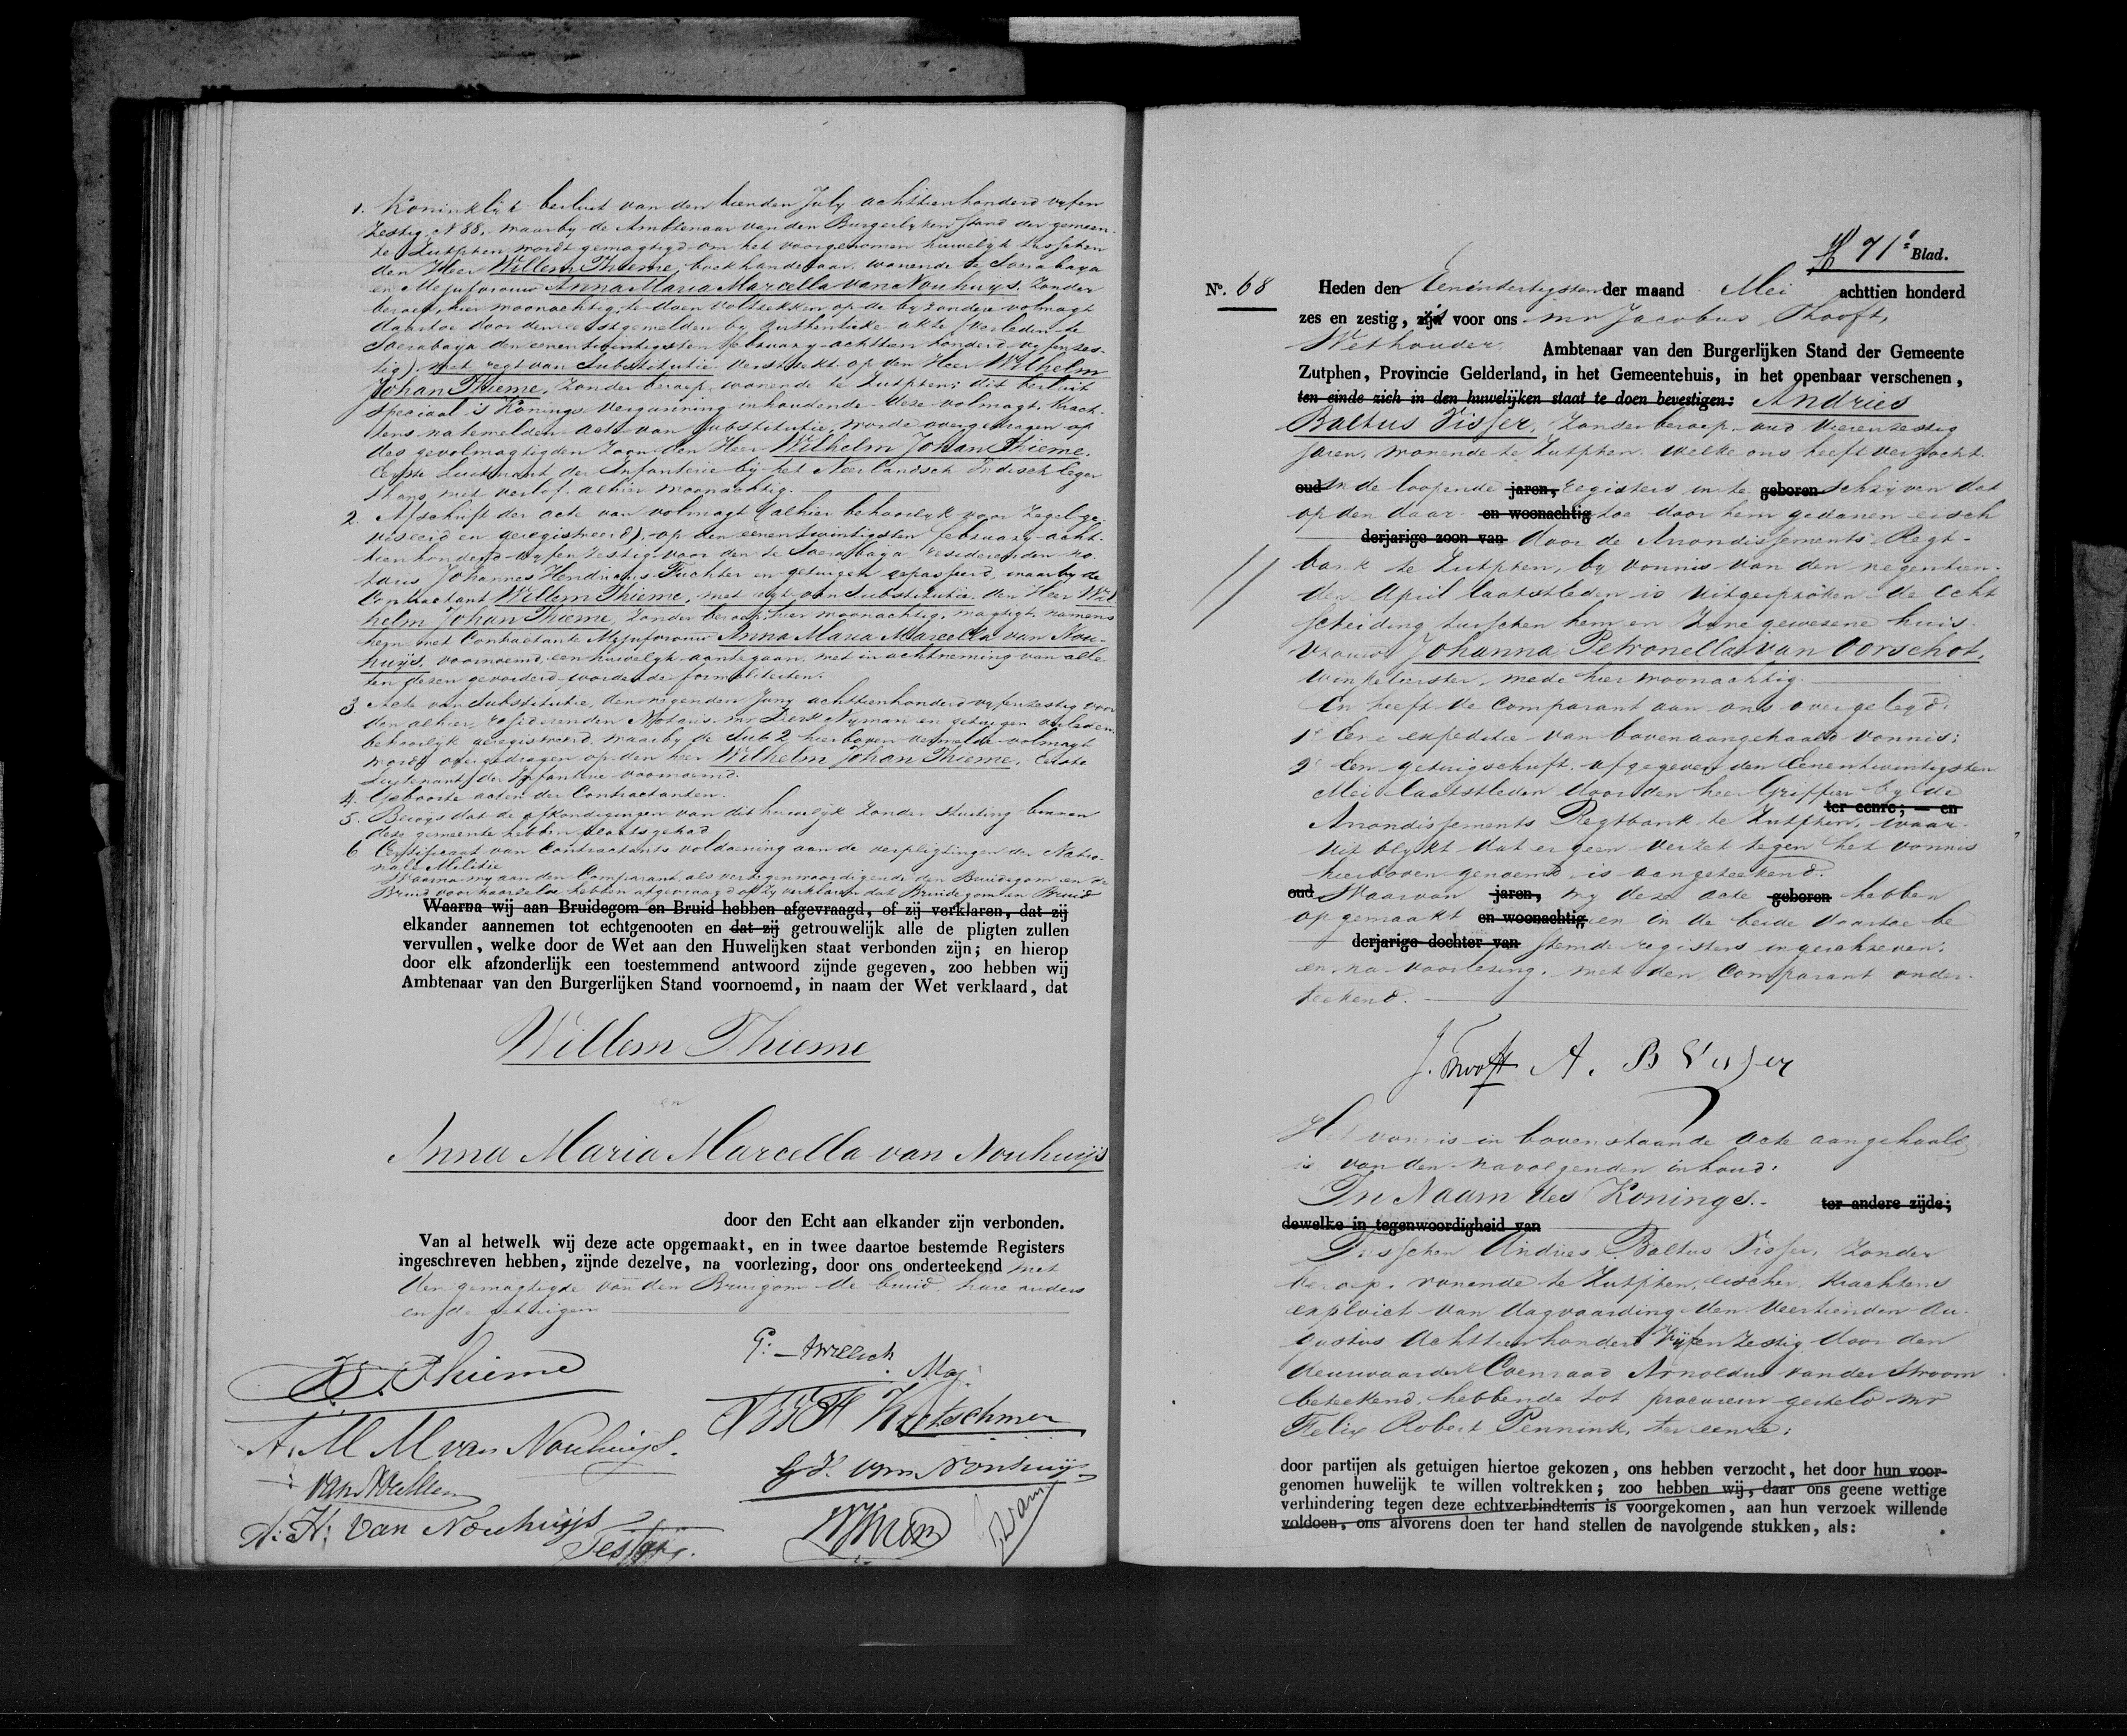 1. Koninklijk besluit van den tienden July achttienhonderd vyfen
zestig, N 88, waarby de Ambtenaar van den Burgerlyken Stand der gemeen-
te Zutphen wordt gemagtigd om het voorgenomen huwelijk tusschen
den Heer Willem Thieme, boekhandelaar, wonende te Soerabaya
en Mejufvrouw Anna Maria Marcella van Nouhuijs, zonder
beroep, hier woonachtig, te doen voltrekken op de byzondere volmagt
daartoe door den eerstgemelden by authentieke akte (verleden te
Soerabaya den eenentwintigsten february achttien honderd vyfenzes-
tig), met regt van Substitutie verstrekt op den Heer Wilhelm
Johan Thieme, zonder beroep, wonende te Zutphen; dit besluit
speciaal 's Konings vergunning inhoudende deze volmagt, krach-
tens natemelden acte van Substitutie, worde overgedragen op
des gevolmagtigden zoon den Heer Wilhelm Johan Thieme,
Eerste Luitenant der Infanterie by het Neerlandsch Indisch leger
thans met verlof, alhier woonachtig.
2. Afschrift der acte van volmagt (alhier behoorlyk voor zegel ge-
viseerd en geregistreerd), op den eenentwintigsten february acht-
tienhonderd vyfenzestig voor den te Soerabaya resideerenden no-
taris Johannes Hendricus Fuchter en getuigen gepasseerd, waarby de
Contractant Willem Thieme, met regt van Substitutie, den Heer Wil
helm Johan Thieme, zonder beroep, hier woonachtig, magtigt namens
hem met Contractante Mejufvrouw Anna Maria Marcella van Nou-
huijs, voornoemd, een huwelyk aantegaan, met inachtneming van alle
ten dezen gevorderd wordende formaliteiten.
3. Acte van Substitutie, den negenden Juny achttienhonderd vyfenzestig voor
den alhier resideerenden Notaris mr Derk Nyman en getuigen verleden,
behoorlyk geregistreerd, waarby de sub 2 hierboven vermelde volmagt
wordt overgedragen op den heer Wilhelm Johan Thieme, Eerste
Luitenant der Infanterie voornoemd.
4. Geboorte acten der Contractanten.
5. Bewys dat de afkondigingen van dit huwelyk zonder stuiting binnen
deze gemeente hebben plaats gehad
6. Certificaat van Contractants voldoening aan de verpligtingen der Natio-
nale Militie
Waarna wy aan den Comparant, als vertegenwoordigende den Bruidegom en de
Bruid voor haarzelve hebben afgevraagd of zy verklaren dat Bruidegom en Bruid
Waarna wij aan Bruidegom en Bruid hebben afgevraagd, of zij verklaren, dat zij
elkander aannemen tot echtgenooten en dat zij getrouwelijk alle de pligten zullen
vervullen, welke door de Wet aan den Huwelijken staat verbonden zijn; en hierop
door elk afzonderlijk een toestemmend antwoord zijnde gegeven, zoo hebben wij
Ambtenaar van den Burgerlijken Stand voornoemd, in naam der Wet verklaard, dat
Willem Thieme
en
Anna Maria Marcella van Nouhuijs
door den Echt aan elkander zijn verbonden.
Van al hetwelk wij deze acte opgemaakt, en in twee daartoe bestemde Registers
ingeschreven hebben, zijnde dezelve, na voorlezing, door ons onderteekend met
den gemagtigde van den Bruigom de bruid, hare ouders
en de getuigen
Thieme
A. M. M van Nouhuijs.
A: H: van Nouhuijs
van Nouhuijs
71e Blad.
No. 68 Heden den Eenendertigsten der maand Mei achttien honderd
zes en zestig, zijn voor ons mr Jacobus Thooft,
Wethouder, Ambtenaar van den Burgerlijken Stand der Gemeente
Zutphen, Provincie Gelderland, in het Gemeentehuis, in het openbaar verschenen,
ten einde zich in den huwelijken staat te doen bevestigen: Andries
Baltus Visser, zonder beroep, oud vierenzestig
jaren, wonende te Zutphen, welke ons heeft verzocht
oud in de loopende jaren, registers in te geboren schryven dat
op den daar en woonachtig toe door hem gedanen eisch
derjarige zoon van door de Arrondissements Regt-
bank te Zutphen, by vonnis van den negentien-
den April laatstleden is uitgesproken de echt
scheiding tusschen hem en zyne gewesene huis-
vrouw Johanna Petronella van Oorschot,
winkelierster, mede hier woonachtig.
En heeft de Comparant aan ons overgelegd:
1e Eene expeditie van bovenaangehaald vonnis;
2e Een getuigschrift afgegeven den Eenentwintigsten
Mei laatstleden door den heer Griffier by de
ter eenre; — en
Arrondissements Regtbank te Zutphen, waar-
uit blykt dat er geen verzet tegen het vonnis
hierboven genoemd is aangeteekend.
oud Waarvan jaren, wy deze acte geboren hebben
opgemaakt en woonachtig en in de beide daartoe be
derjarige dochter van stemde registers ingeschreven,
en na voorlezing, met den Comparant onder-
teekend.
J. Thooft A. B Visser
Het vonnis in bovenstaande acte aangehaald
is van den navolgenden inhoud:
In Naam des Konings. ter andere zijde;
dewelke in tegenwoordigheid van
Tusschen Andries Baltus Visser, zonder
beroep, wonende te Zutphen, eischer, krachtens
exploict van dagvaarding den veertienden Au-
gustus achttien honderd vijfenzestig door den
deurwaarder Coenraad Arnoldus van der Stroom
beteekend, hebbende tot procureur gesteld mr
Felix Robert Pennink, ter eenre;
door partijen als getuigen hiertoe gekozen, ons hebben verzocht, het door hun voor-
genomen huwelijk te willen voltrekken; zoo hebben wij, daar ons geene wettige
verhindering tegen deze echtverbindtenis is voorgekomen, aan hun verzoek willende
voldoen, ons alvorens doen ter hand stellen de navolgende stukken, als: